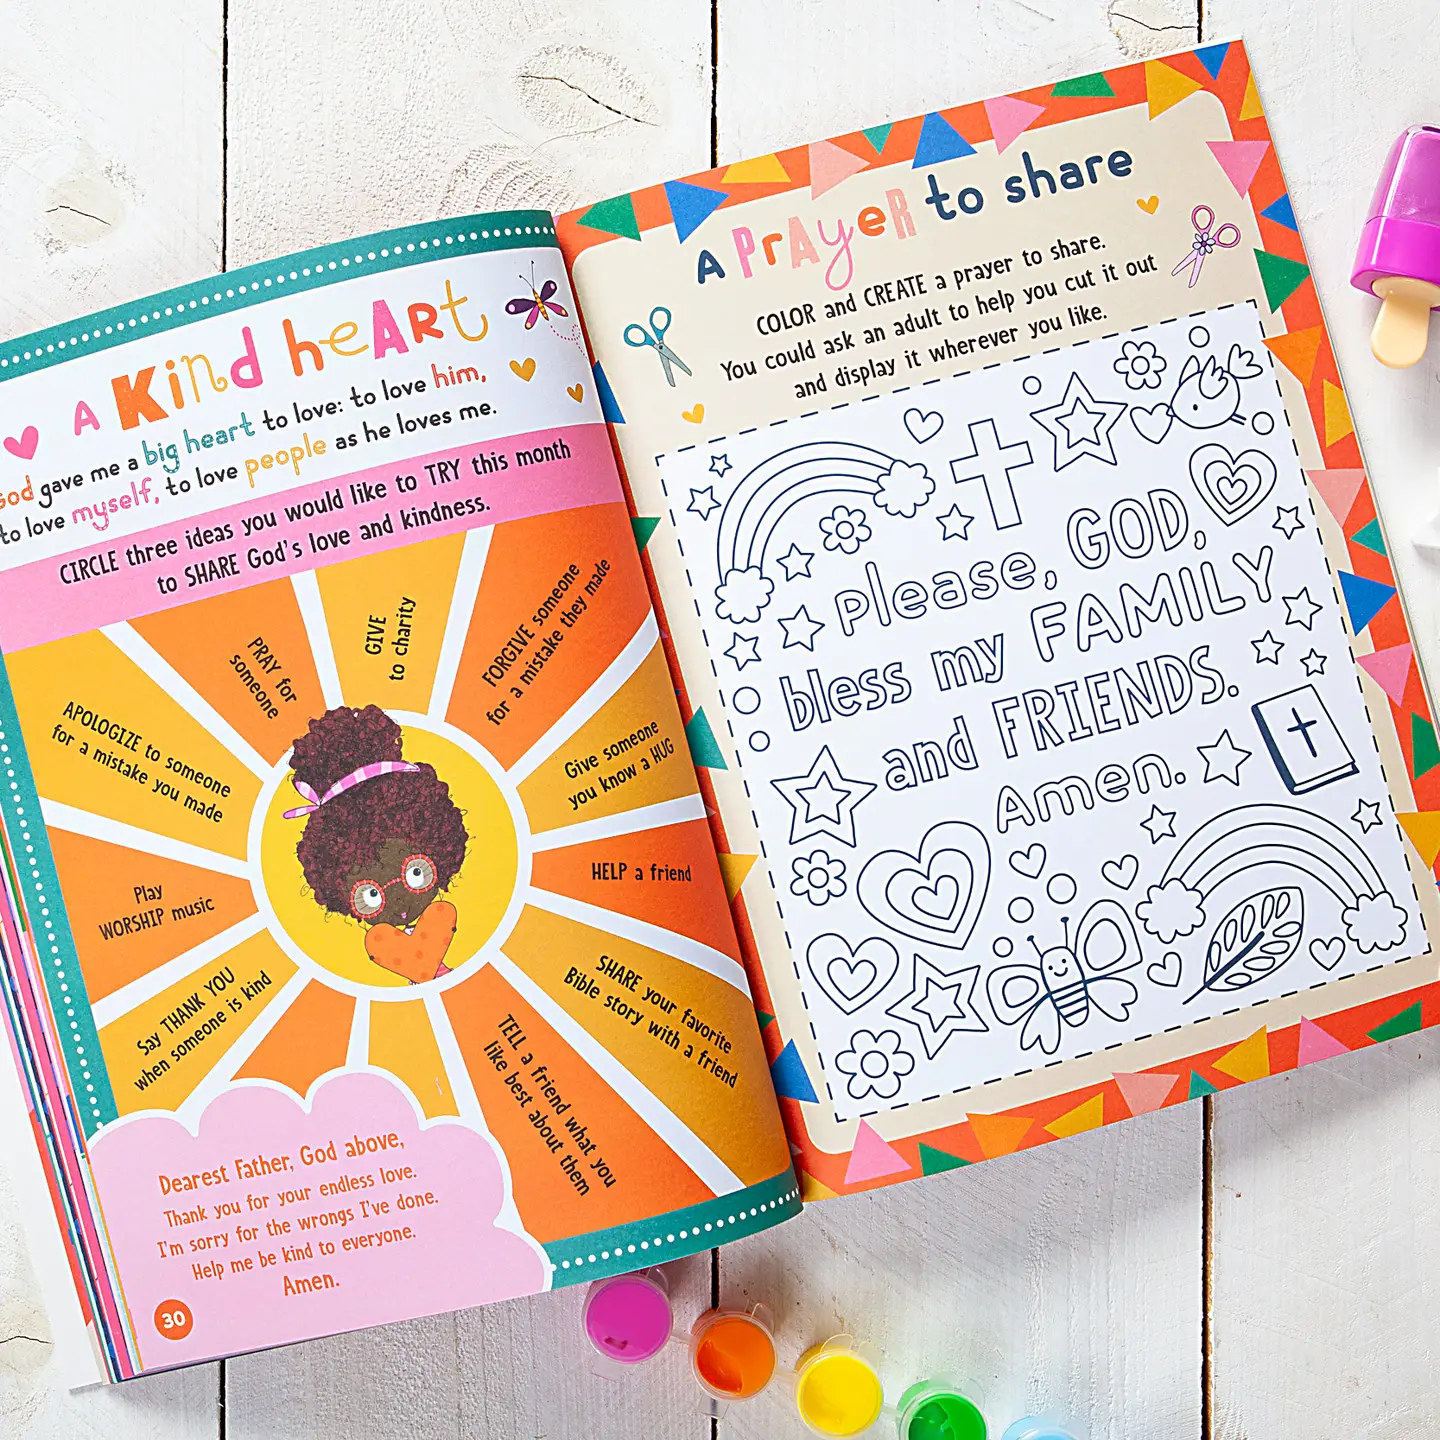 A KiNd heART
God gave me a big heart to love: to love him,
to love myself, to love people as he loves me.
CIRCLE three ideas you would like to TRY this month
to SHARE God's love and kindness.
APOLOGIZE to someone
for a mistake you made
PRAY for
someone
GIVE
to charity
FORGIVE someone
for a mistake they made
Give someone
you know a HUG
HELP a friend
SHARE your favorite
Bible story with a friend
TELL a friend what you
like best about them
Say THANK YOU
when someone is kind
Play
WORSHIP music
Dearest Father, God above,
Thank you for your endless love.
I'm sorry for the wrongs I've done.
Help me be kind to everyone.
Amen.
30
A PrAyeR to share
COLOR and CREATE a prayer to share.
You could ask an adult to help you cut it out
and display it wherever you like.
Please, GOD,
bless my FAMILY
and FRIENDS.
Amen.